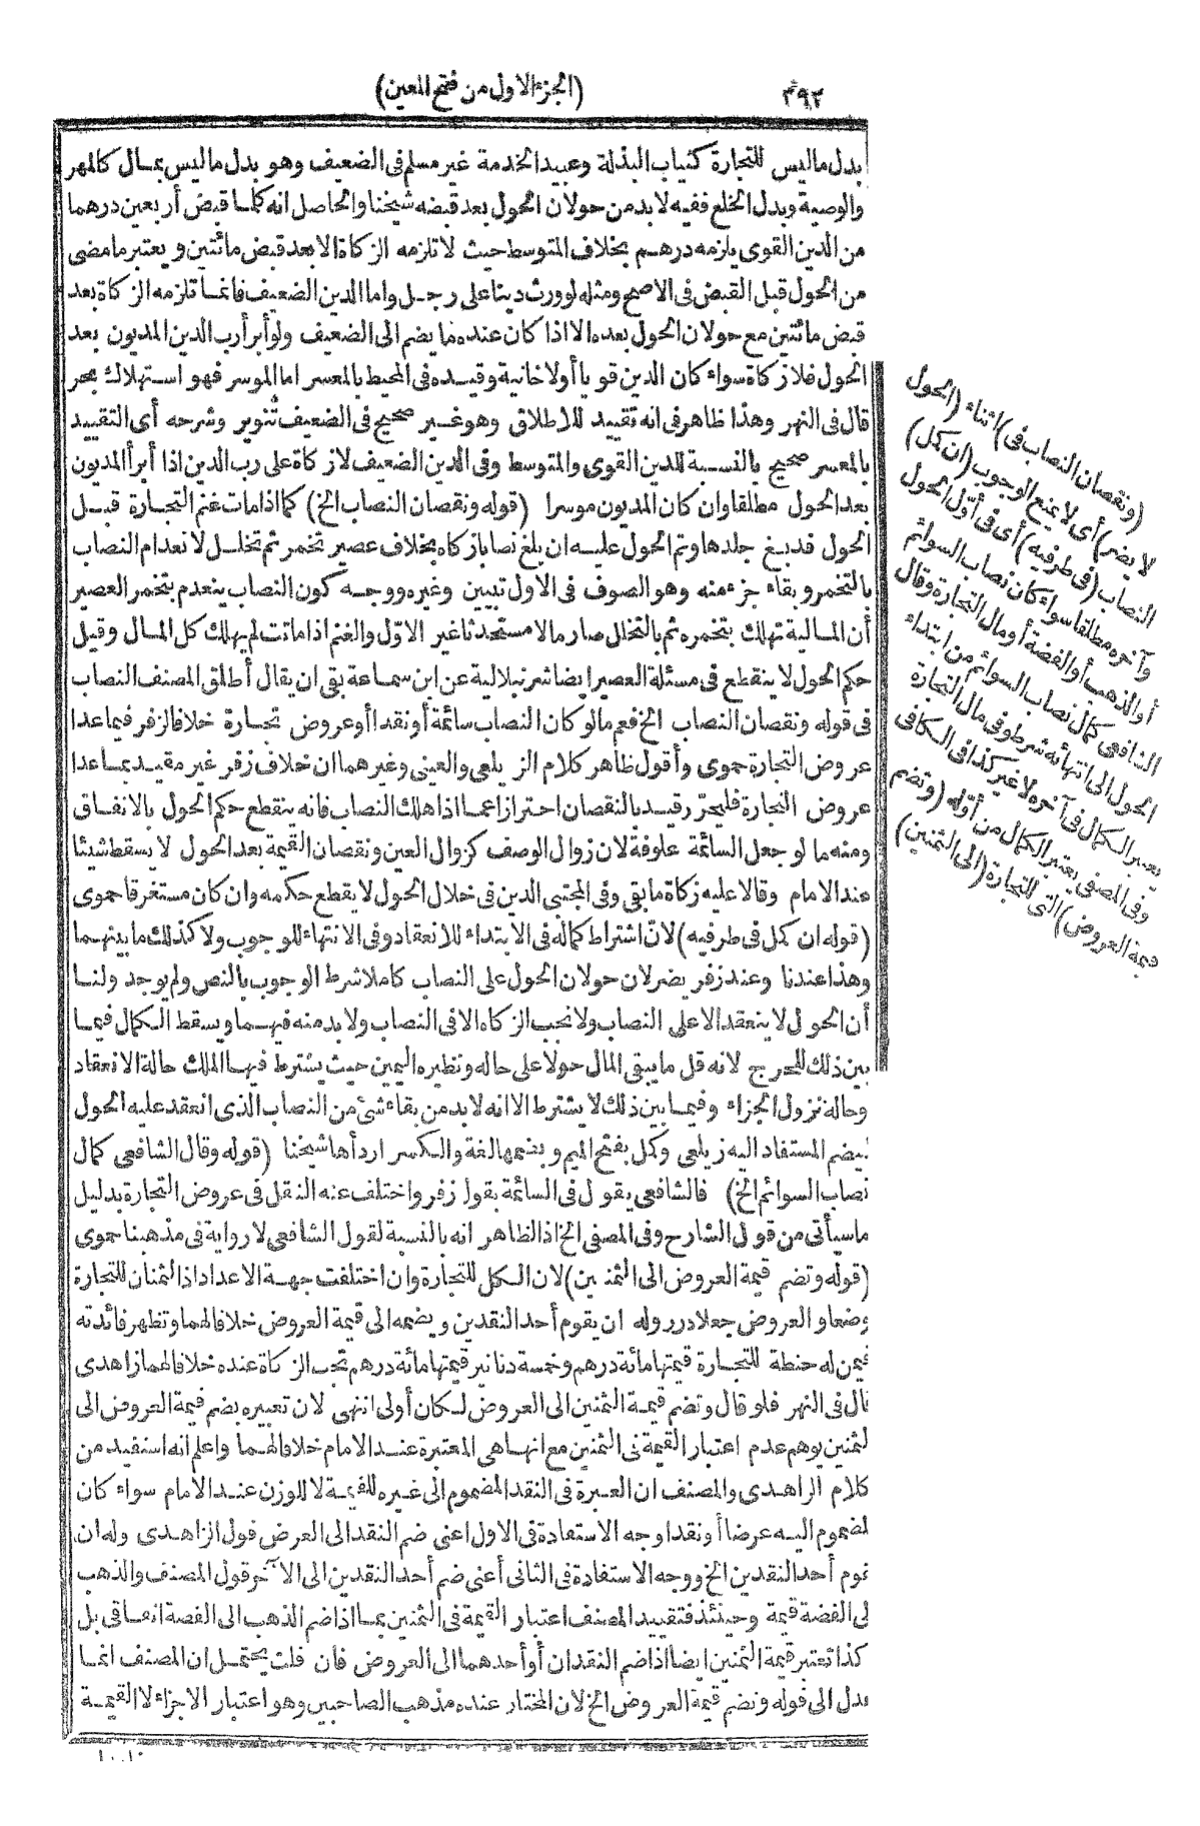 ٣٩٢
(الجزء الاول من فتح المعين)
بدل ماليس للتجارة كثياب البذلة وعبيد الخدمة غير مسلم فى الضعيف وهو بدل ماليس بمال كالمهر
والوصية وبدل الخلع ففيه لا بد من حولان الحول بعد قبضه شيخنا والحاصل انه كلما قبض أربعين درهما
من الدين القوى يلزمه درهم بخلاف المتوسط حيث لا تلزمه الزكاة الا بعد قبض مائتين ويعتبر ما مضى
من الحول قبل القبض فى الاصح ومثله لو ورث دينا على رجل واما الدين الضعيف فانما تلزمه الزكاة بعد
قبض مائتين مع حولان الحول بعده الا اذا كان عنده ما يضم الى الضعيف ولو أبرأ رب الدين المديون بعد
الحول فلا زكاة سواء كان الدين قويا أولا خانية وقيده فى المحيط بالمعسر اما الموسر فهو استهلاك بحر
قال فى النهر وهذا ظاهر فى انه تقييد للاطلاق وهو غير صحيح فى الضعيف تنوير وشرحه أى التقييد
بالمعسر صحيح بالنسبة للدين القوى والمتوسط وفى الدين الضعيف لا زكاة على رب الدين اذا أبرأ المديون
بعد الحول مطلقا وان كان المديون موسرا (قوله ونقصان النصاب الخ) كما اذا مات غنم التجارة قبل
الحول فدبغ جلدها وتم الحول عليه ان بلغ نصابا زكاه بخلاف عصير تخمر ثم تخلل لانعدام النصاب
بالتخمر وبقاء جزء منه وهو الصوف فى الاول تبيين وغيره ووجه كون النصاب ينعدم بتخمر العصير
أن المالية تهلك بتخمره ثم بالتخلل صار مالا مستحدثا غير الاول والغنم اذا ماتت لم يهلك كل المال وقيل
حكم الحول لا ينقطع فى مسئلة العصير ايضا شرنبلالية عن ابن سماعة بقى ان يقال أطلق المصنف النصاب
فى قوله ونقصان النصاب الخ فعم مالو كان النصاب سائمة أو نقدا أو عروض تجارة خلافا لزفر فيما عدا
عروض التجارة حموى وأقول ظاهر كلام الزيلعى والعينى وغيرهما ان خلاف زفر غير مقيد بما عدا
عروض التجارة فليحرر قيد بالنقصان احترازا عما اذا هلك النصاب فانه ينقطع حكم الحول بالاتفاق
ومنه ما لو جعل السائمة علوفة لان زوال الوصف كزوال العين ونقصان القيمة بعد الحول لا يسقط شيئا
عند الامام وقالا عليه زكاة ما بقى وفى المجتبى الدين فى خلال الحول لا يقطع حكمه وان كان مستغرقا حموى
(قوله ان كمل فى طرفيه) لان اشتراط كماله فى الابتداء للانعقاد وفى الانتهاء للوجوب ولا كذلك ما بينهما
وهذا عندنا وعند زفر يضر لان حولان الحول على النصاب كاملا شرط الوجوب بالنص ولم يوجد ولنا
أن الحول لا ينعقد الا على النصاب ولا تجب الزكاة الا فى النصاب ولا بد منه فيهما ويسقط الكمال فيما
بين ذلك للحرج لانه قل ما يبقى المال حولا على حاله ونظيره اليمين حيث يشترط فيها الملك حالة الانعقاد
وحالة نزول الجزاء وفيما بين ذلك لا يشترط الا انه لا بد من بقاء شئ من النصاب الذى انعقد عليه الحول
ليضم المستفاد اليه زيلعى وكمل بفتح الميم وبضمها لغة والكسر اردأها شيخنا (قوله وقال الشافعى كمال
نصاب السوائم الخ) فالشافعى يقول فى السائمة بقول زفر واختلف عنه النقل فى عروض التجارة بدليل
ما سيأتى من قول الشارح وفى المصفى الخ اذ الظاهر انه بالنسبة لقول الشافعى لا رواية فى مذهبنا حموى
(قوله وتضم قيمة العروض الى الثمنين) لان الكل للتجارة وان اختلفت جهة الاعداد اذ الثمنان للتجارة
وضعا والعروض جعلا درر وله ان يقوم أحد النقدين ويضمه الى قيمة العروض خلافا لهما وتظهر فائدته
فيمن له حنطة للتجارة قيمتها مائة درهم وخمسة دنانير قيمتها مائة درهم تجب الزكاة عنده خلافا لهما زاهدى
قال فى النهر فلو قال وتضم قيمة الثمنين الى العروض لكان أولى انتهى لان تعبيره بضم قيمة العروض الى
لثمنين يوهم عدم اعتبار القيمة فى الثمنين مع انها هى المعتبرة عند الامام خلافا لهما واعلم انه استفيد من
كلام الزاهدى والمصنف ان العبرة فى النقد المضموم الى غيره للقيمة لا للوزن عند الامام سواء كان
لمضموم اليه عرضا أو نقدا وجه الاستفادة فى الاول اعنى ضم النقد الى العرض قول الزاهدى وله ان
قوم أحد النقدين الخ ووجه الاستفادة فى الثانى أعنى ضم أحد النقدين الى الآخر قول المصنف والذهب
لى الفضة قيمة وحينئذ فتقييد المصنف اعتبار القيمة فى الثمنين بما اذا ضم الذهب الى الفضة اتفاقى بل
كذا تعتبر قيمة الثمنين ايضا اذا ضم النقدان أو أحدهما الى العروض فان قلت يحتمل ان المصنف انما
عدل الى قوله وتضم قيمة العروض الخ لان المختار عنده مذهب الصاحبين وهو اعتبار الاجزاء لا القيمة
(ونقصان النصاب فى) اثناء (الحول
لا يضر) أى لا يمنع الوجوب (ان كمل)
النصاب (فى طرفيه) أى فى أول الحول
وآخره مطلقا سواء كان نصاب السوائم
أو الذهب أو الفضة أو مال التجارة وقال
الشافعى كمال نصاب السوائم من ابتداء
الحول الى انتهائه شرط وفى مال التجارة
يعتبر الكمال فى آخره لا غير كذا فى الكافى
وفى المصفى يعتبر الكمال من أوله (وتضم
قيمة العروض) التى للتجارة (الى الثمنين)